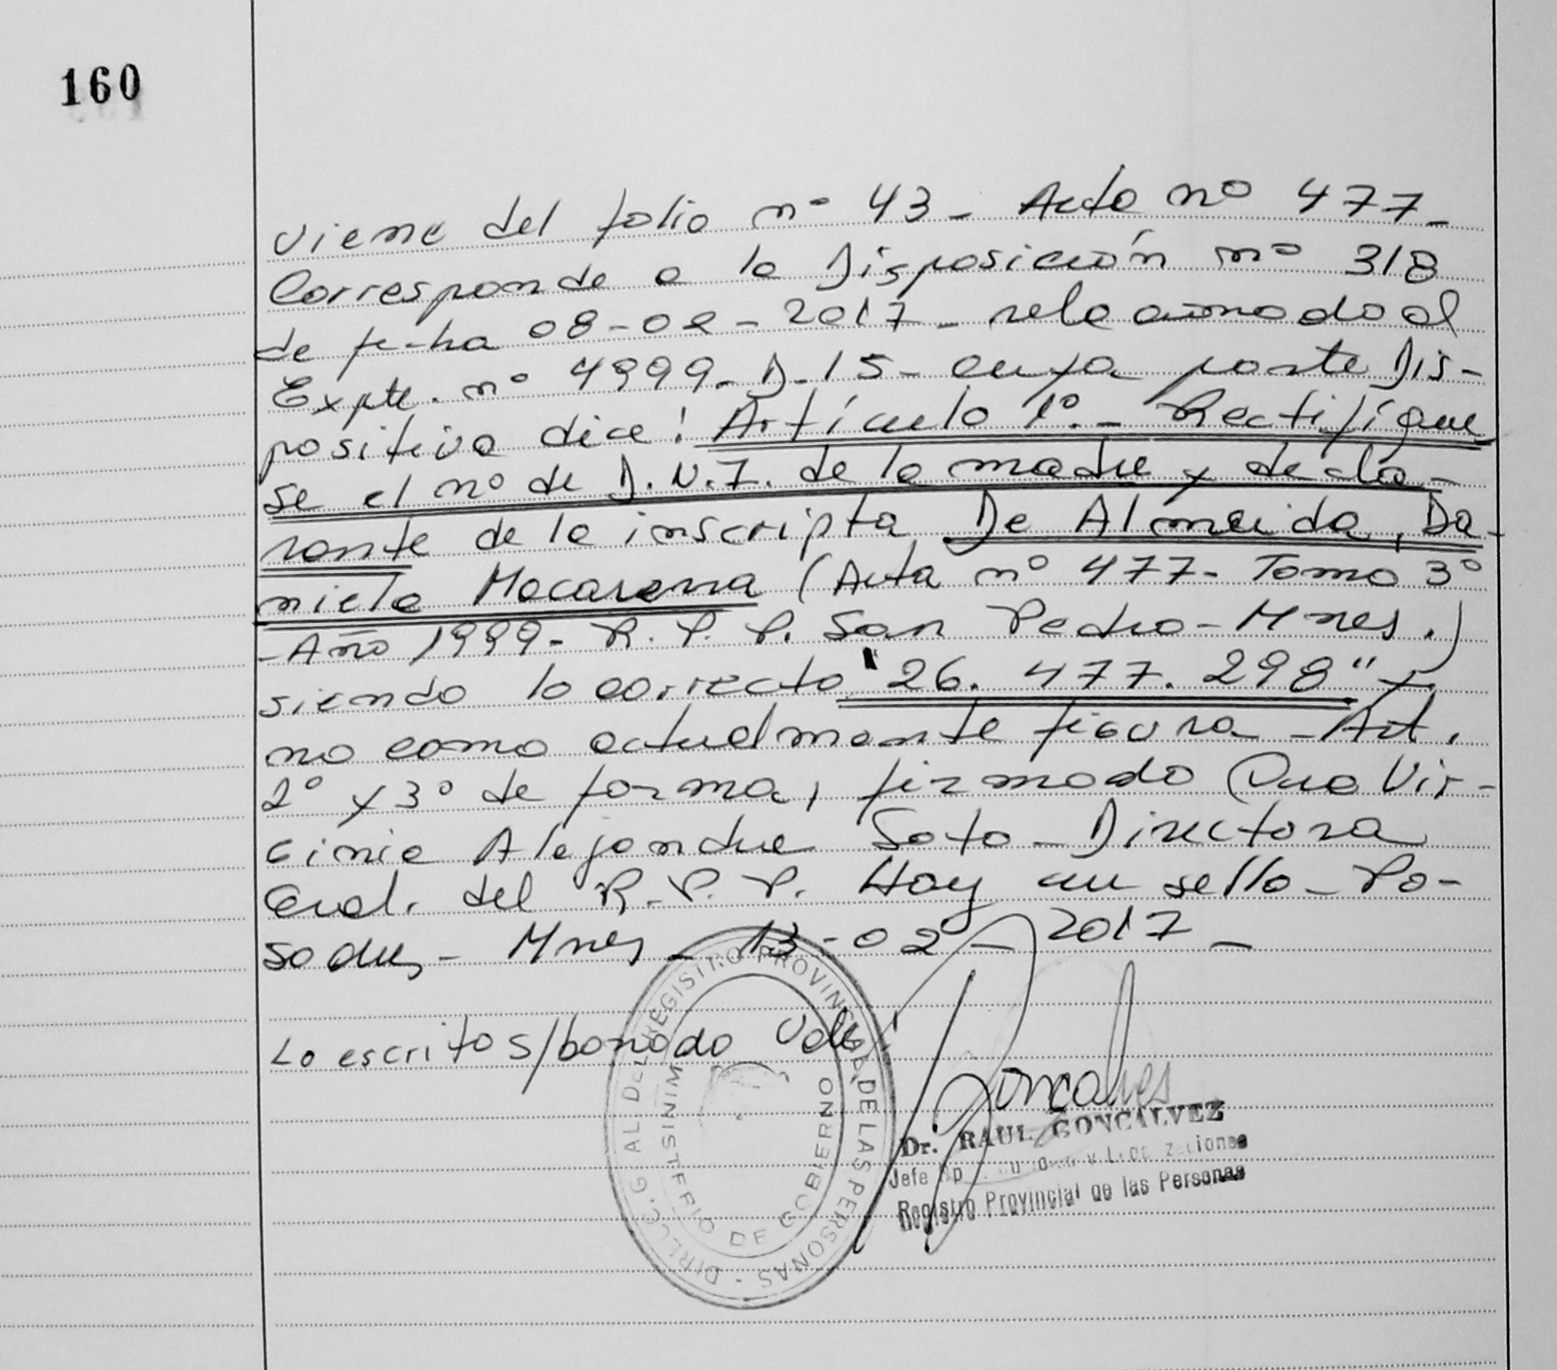 160
Viene del folio nº 43 - Acta nº 477 -
Corresponde a la Disposición nº 318
de fecha 08-02-2017 - relacionado al
Expte. nº 4999-D-15 - cuya parte Dis-
positiva dice: Artículo 1º.- Rectifíque
se el nº de D.N.I. de la madre y decla-
rante de la inscripta De Almeida, Da-
niela Macarena (Acta nº 477- Tomo 3º
-Año 1999- R.P.P. San Pedro-Mnes.)
siendo lo correcto "26.477.298" y
no como actualmente figura - Art.
2º y 3º de forma, firmado Dra Vir-
ginia Alejandra Soto - Directora
Gral. del R.P.P. Hay un sello - Po-
sadas - Mnes - 13-02-2017 -
Lo escrito s/borrado Vale
Goncalves
Dr. RAUL GONCALVEZ
Jefe
Registro Provincial de las Personas
DIREC. GRAL. DEL REGISTRO PROVINCIAL DE LAS PERSONAS -
MINISTERIO DE GOBIERNO